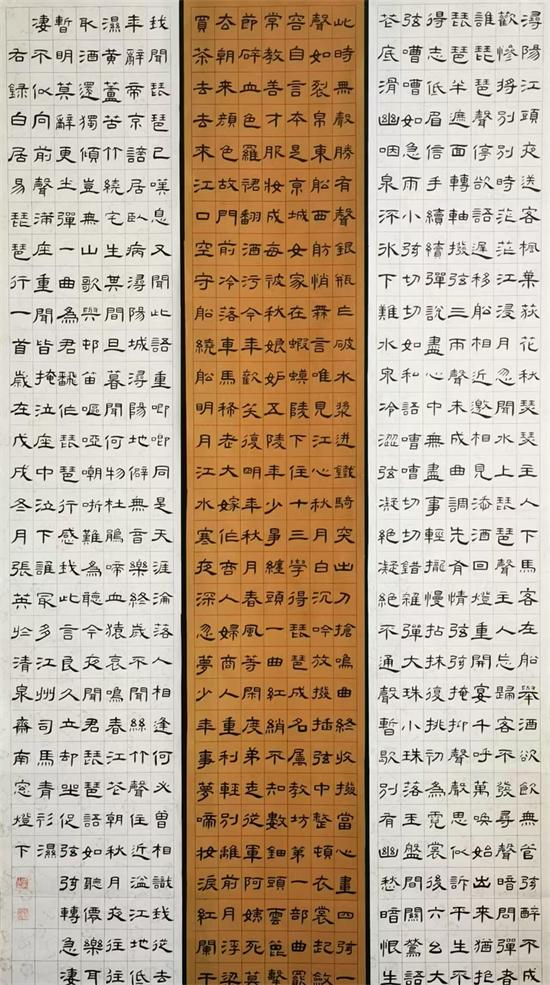 潯陽江頭夜送客楓葉荻花秋瑟瑟主人下馬客在船舉酒欲飲無管弦醉不成
歡慘將別別時茫茫江浸月忽聞水上琵琶聲主人忘歸客不發尋聲暗問彈
誰琵琶聲停欲語遲移船相近邀相見添酒回燈重開宴千呼萬喚始出來猶抱
琵琶半遮面轉軸撥弦三兩聲未成曲調先有情弦弦掩抑聲聲思似訴平生不
得志低眉信手續續彈說盡心中無盡事輕攏慢拈抹復挑初為霓裳後六幺大
弦嘈嘈如急雨小弦切切如私語嘈嘈切切錯雜彈大珠小珠落玉盤間關鶯語
花底滑幽咽泉流冰下難水泉冷澀弦凝絕凝絕不通聲暫歇別有幽愁暗恨生
此時無聲勝有聲銀瓶乍破水漿迸鐵騎突出刀槍鳴曲終收撥當心畫四弦一
聲如裂帛東船西舫悄無言唯見江心秋月白沉吟放撥插弦中整頓衣裳起斂
容自言本是京城女家在蝦蟆陵下住十三學得琵琶成名屬教坊第一部曲罷
常教善才服妝成每被秋娘妒五陵年少爭纏頭一曲紅綃不知數鈿頭雲篦擊
節碎血色羅裙翻酒污今年歡笑復明年秋月春風等閑度弟走從軍阿姨死暮
去朝來顏色故門前冷落車馬稀老大嫁作商人婦商人重利輕別離前月浮梁
買茶去去來江口空守船繞船明月江水寒夜深忽夢少年事夢啼妝淚紅闌干
我聞琵琶已嘆息又聞此語重唧唧同是天涯淪落人相逢何必曾相識我從去
年辭帝京謫居臥病潯陽城潯陽地僻無音樂終歲不聞絲竹聲住近湓江地低
濕黃蘆苦竹繞宅生其間旦暮聞何物杜鵑啼血猿哀鳴春江花朝秋月夜往往
取酒還獨傾豈無山歌與村笛嘔啞嘲哳難為聽今夜聞君琵琶語如聽僊樂耳
暫明莫辭更坐彈一曲為君翻作琵琶行感我此言良久立却坐促弦弦轉急淒
淒不似向前聲滿座重聞皆掩泣座中泣下誰冣多江州司馬青衫濕
右錄白居易琵琶行一首歲在戊戌冬月張英於清泉齋南窗燈下